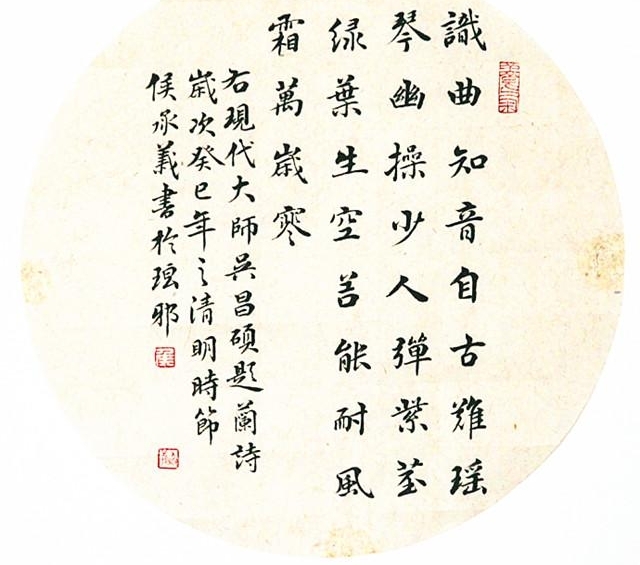 識曲知音自古難瑶
琴幽操少人彈紫莖
绿葉生空谷能耐風
霜萬歲寒
右現代大師吳昌碩題蘭詩
歲次癸巳年之清明時節
侯承義書於瑯邪